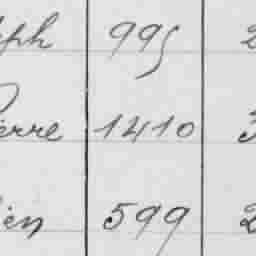 ph 995 2
ierre 1410 3
ien 599 2